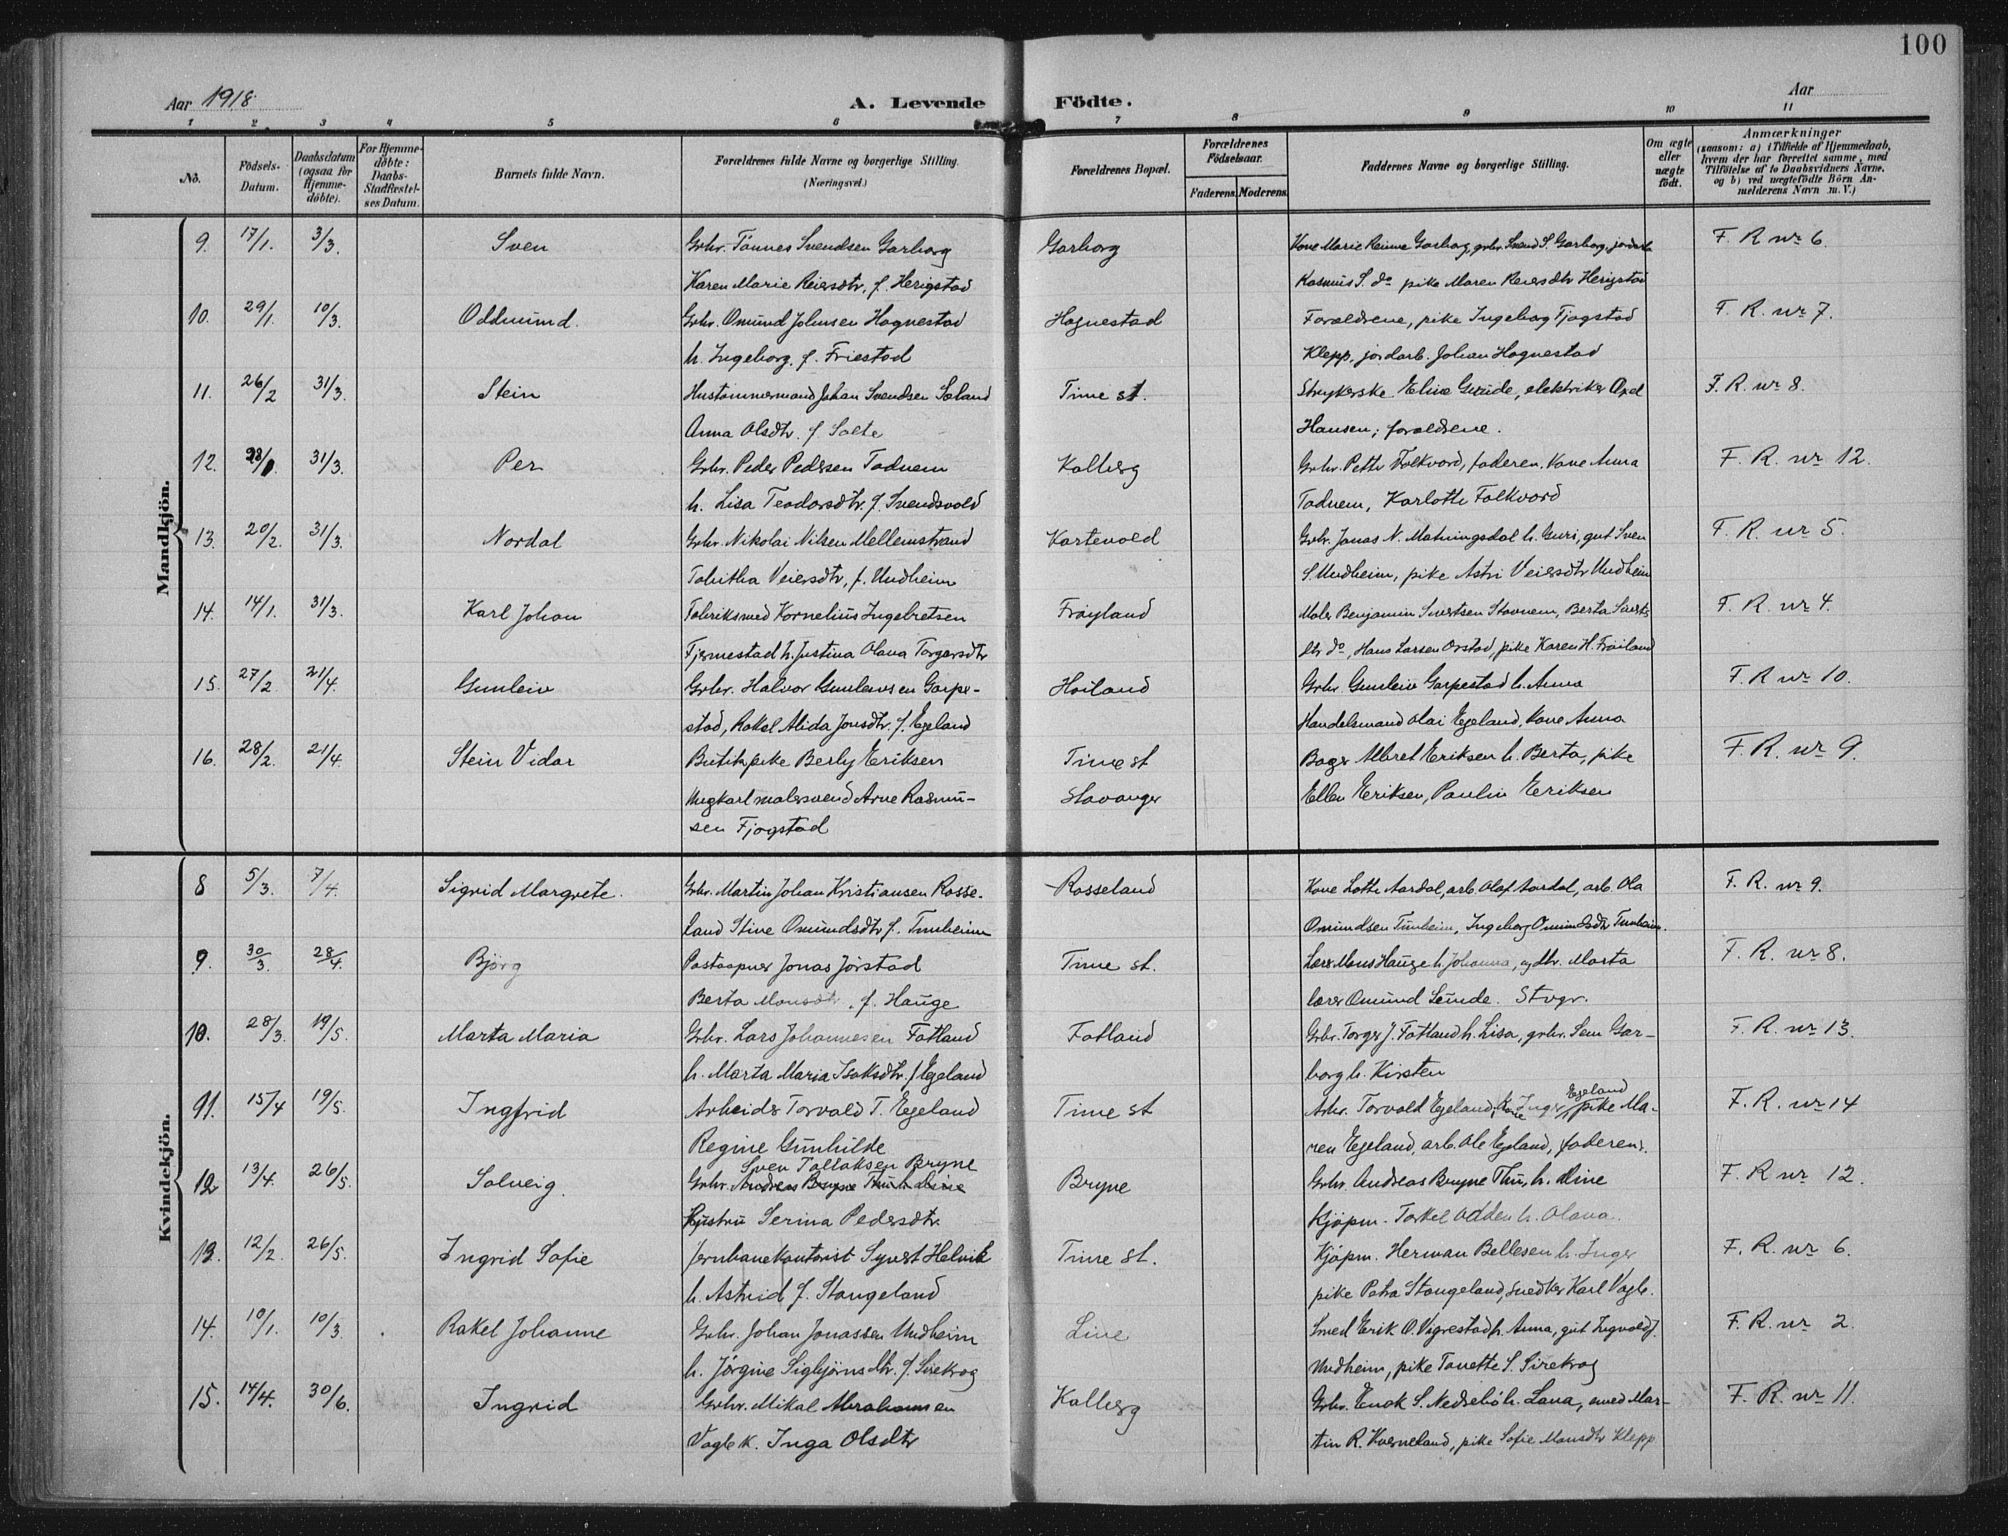 100
Aar 1918.
A. Levende Födte.
Aar
1 2. 3 4 5 6 7 8 9 10 11
No.
Födsels-Datum.
Daabsdatum (ogsaa for Hjemme-döbte).
For Hjemme-döbte: Daabs-Stadfæstelses Datum.
Barnets fulde Navn.
Forældrenes fulde Navne og borgerlige Stilling. (Næringsvei.)
Forældrenes Bopæl.
Forældrenes Födselsaar.
Faderens. Moderens.
Faddernes Navne og borgerlige Stilling.
Om ægte eller uægte födt.
Anmærkninger
(saasom: a) i Tilfælde af Hjemmedaab, hvem der har forrettet samme, med Tilföielse af to Daabsvidners Navne. og b) ved uægtefödte Börn Anmelderens Navn m. V.)
Mandkjön.
9. 17/1. 3/3. Sven Grbr. Tönnes Svendsen Garborg Garborg Kone Marie Reime Garborg, grbr. Svend S. Garborg, jordarb. F. R. nr 6.
Karen Marie Reiersdtr, f. Herigstad Rasmus S. do pike Maren Reiersdtr Herigstad
10. 29/1. 10/3. Oddmund. Grbr. Omund Johnsen Hognestad Hognestad Forældrene, pike Ingeborg Tjogstad F. R. nr 7.
h. Ingeborg. f. Friestad Klepp, jordarb. Johan Hognestad
11. 26/2 31/3. Stein Hustømmermand Johan Svendsen Søland Time st. Strykerske Elise Grude, elektriker Axel F. R. nr 8.
Anna Olsdtr. f Salte Hansen; forældrene.
12. 28/1. 31/3. Per Grbr. Peder Pedersen Tadnem Kalberg Grbr. Petter Folkvord, faderen, kone Anna F. R. nr 12.
h. Lisa Teodorsdtr. f. Svendsvold Tadnem, Karlotte Folkvord
13. 20/2. 31/3. Nordal Grbr. Nikolai Nilsen Mellemstrand Kartevold Grbr. Jonas N. Matningsdal h. Guri, gut Sven F. R. nr 5.
Tabitha Veiersdtr, f. Undheim S. Undheim, pike Astri Veiersdtr Undheim
14. 14/1. 31/3. Karl Johan Fabriksmed Kornelius Ingebretsen Frøyland Maler Benjamin Sivertsen Stavnem, Berta Siverts- F. R. nr 4.
Fjermestad h. Justina Olava Torgersdtr dtr do, Hans Larsen Orstad, pike Karen H. Frøiland
15. 27/2 21/4. Gunleiv Grbr. Halvor Gunlevsen Garpe- Høiland Grbr. Gunleiv Garpestad h. Anna F. R nr 10.
stad, Rakel Alida Jonsdtr. f. Egeland Handelsmand Olai Egeland, Kone Anna
16. 28/2. 21/4. Stein Vidar Butikpike Berly Eriksen Time st Bager Albret Eriksen h. Berta, pike F. R. nr 9.
Ungkarl malersvend Arne Rasmu- Stavanger Ellen Eriksen, Paulin Eriksen
sen Fjogstad
Kvindekjön.
8 5/3. 7/4. Sigrid Margrete. Grbr. Martin Johan Kristiansen Rosse- Rosseland Kone Lotte Aardal, arb. Olaf Aardal, arb. Ola F. R. nr 9.
land Stine Omundsdtr f. Tunheim Omundsen Tunheim, Ingeborg Omundsdtr Tunheim.
9. 30/3. 28/4. Bjørg Postaapner Jonas Jørstad Time st. Lærer Mons Hauge h. Johanna, og dtr. Marta F. R. nr 8.
Berta Monsdtr. f. Hauge lærer Omund Lunde. Stvgr.
10. 28/3. 19/5. Marta Maria Grbr. Lars Johannesen Fotland Fotland Grbr. Torger J. Fotland h. Lisa, grbr. Sem Gar- F. R. nr 13.
h. Marta Maria Isaksdtr. f Egeland borg h. Kirsten
11. 15/4 19/5. Ingfrid Arbeider Torvald T. Egeland Time st Arbr. Torvald Egeland, Kone Inger Egeland pike Ma- F. R. nr 14
Regine Gunhilde ren Egeland, arb. Ole Egeland, faderen.
12 13/4. 26/5. Solveig. Grbr. Sven Tallaksen Bryne Bryne Grbr. Andreas Bryne Thu, h. Line F. R nr 12.
Hustru Serina Pedersdtr. Kjøpm. Torkel Odden h. Olava.
13. 12/2. 26/5. Ingrid Sofie Jernbanekontorist Syvert Helvik Time st. Kjøpm. Herman Bellesen h. Inger F. R. nr 6.
h. Astrid f. Stangeland pike Petra Stangeland, snedker Karl Vagle.
14. 10/1. 10/3. Rakel Johanne Grbr. Johan Jonassen Undheim Line Smed Erik O. Vigrestad h. Anna, gut Ingvald J. F. R. nr 2.
h. Jørgine Sigbjørnsdtr. f. Sirekrog Undheim, pike Tonette S. Sirekrog
15. 14/4. 30/6. Ingrid Grbr. Mikal Abrahamsen Kalberg Grbr. Enok S. Nedrebø h. Lava, smed Mar- F. R. nr 11.
Vagle K. Inga Olsdtr tin R. Kverneland, pike Sofie Monsdtr Klepp